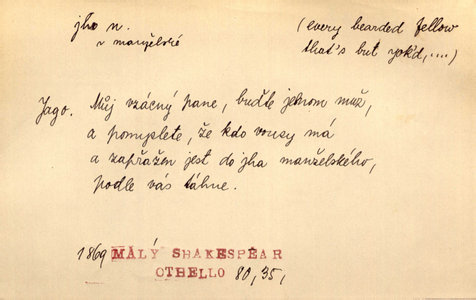 jho n.
v manželské
(every bearded fellow
that's but yok'd,....)
Jago. Můj vzácný pane, buďte jenom muž,
a pomyslete, že kdo vousy má
a zapřažen jest do jha manželského,
podle vás táhne.
1869 MALÝ SHAKESPEAR
OTHELLO 80, 35,